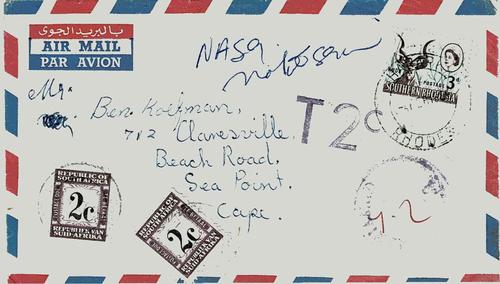 بالبريد الجوى
AIR MAIL
PAR AVION
NASA
POSTAGE
3d
SOUTHERN RHODESIA
RHODES
T 2c
Mr. Ben Koefman,
712 Claresville,
Beach Road,
Sea Point.
Cape.
REPUBLIC OF
SOUTH AFRICA
2c
REPUBLIEK VAN
SUID-AFRIKA
REPUBLIC OF
SOUTH AFRICA
2c
REPUBLIEK VAN
SUID-AFRIKA